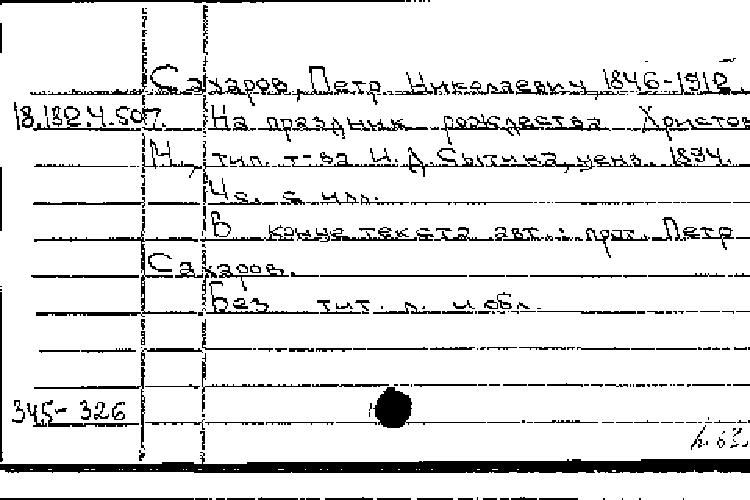 Сахаров, Петр Николаевич, 1846-1912
18.182.4.507. На праздник рождества Христов
М., тип. т-ва И. Д. Сытина, ценз. 1894.
4с. с илл.
В конце текста авт.: прот. Петр
Сахаров.
Без тит. л. и обл.
345-326